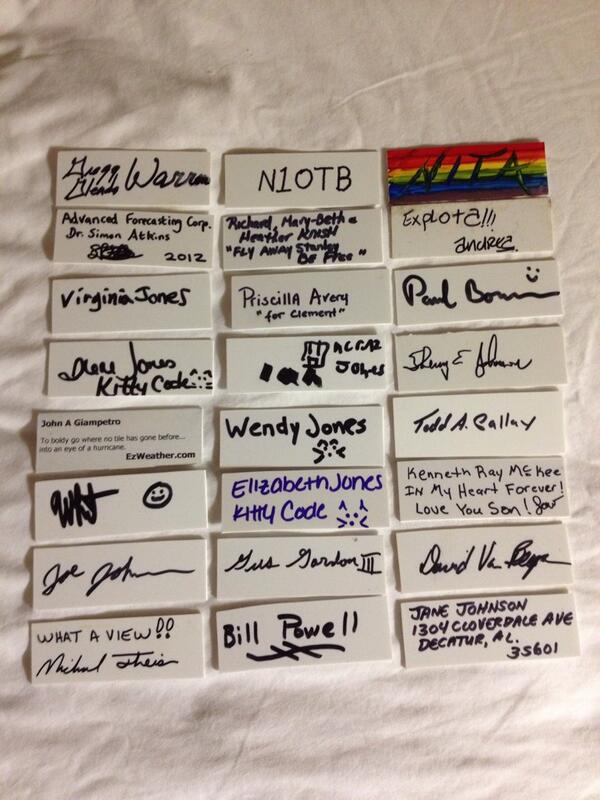 Warren
N1OTB
NITA
Advanced Forecasting Corp.
Dr. Simon Atkins
2012
Richard, Mary-Beth &
Heather Knish
"Fly Away Stanley
Be Free"
Explota!!!
andrea
Virginia Jones
Priscilla Avery
"for Clement"
Paul
Jones
Kitty Code
Jones
Sherry E Johnson
John A Giampetro
To boldly go where no tile has gone before...
into an eye of a hurricane.
EzWeather.com
Wendy Jones
Todd A. Callay
Elizabeth Jones
Kitty Code
Kenneth Ray McKee
IN My Heart Forever!
Love You Son!
Joe Johnson
Gus Gordon III
David Van
WHAT A VIEW!!
Michael Theis
Bill Powell
JANE JOHNSON
1304 CLOVERDALE AVE
DECATUR, AL.
35601